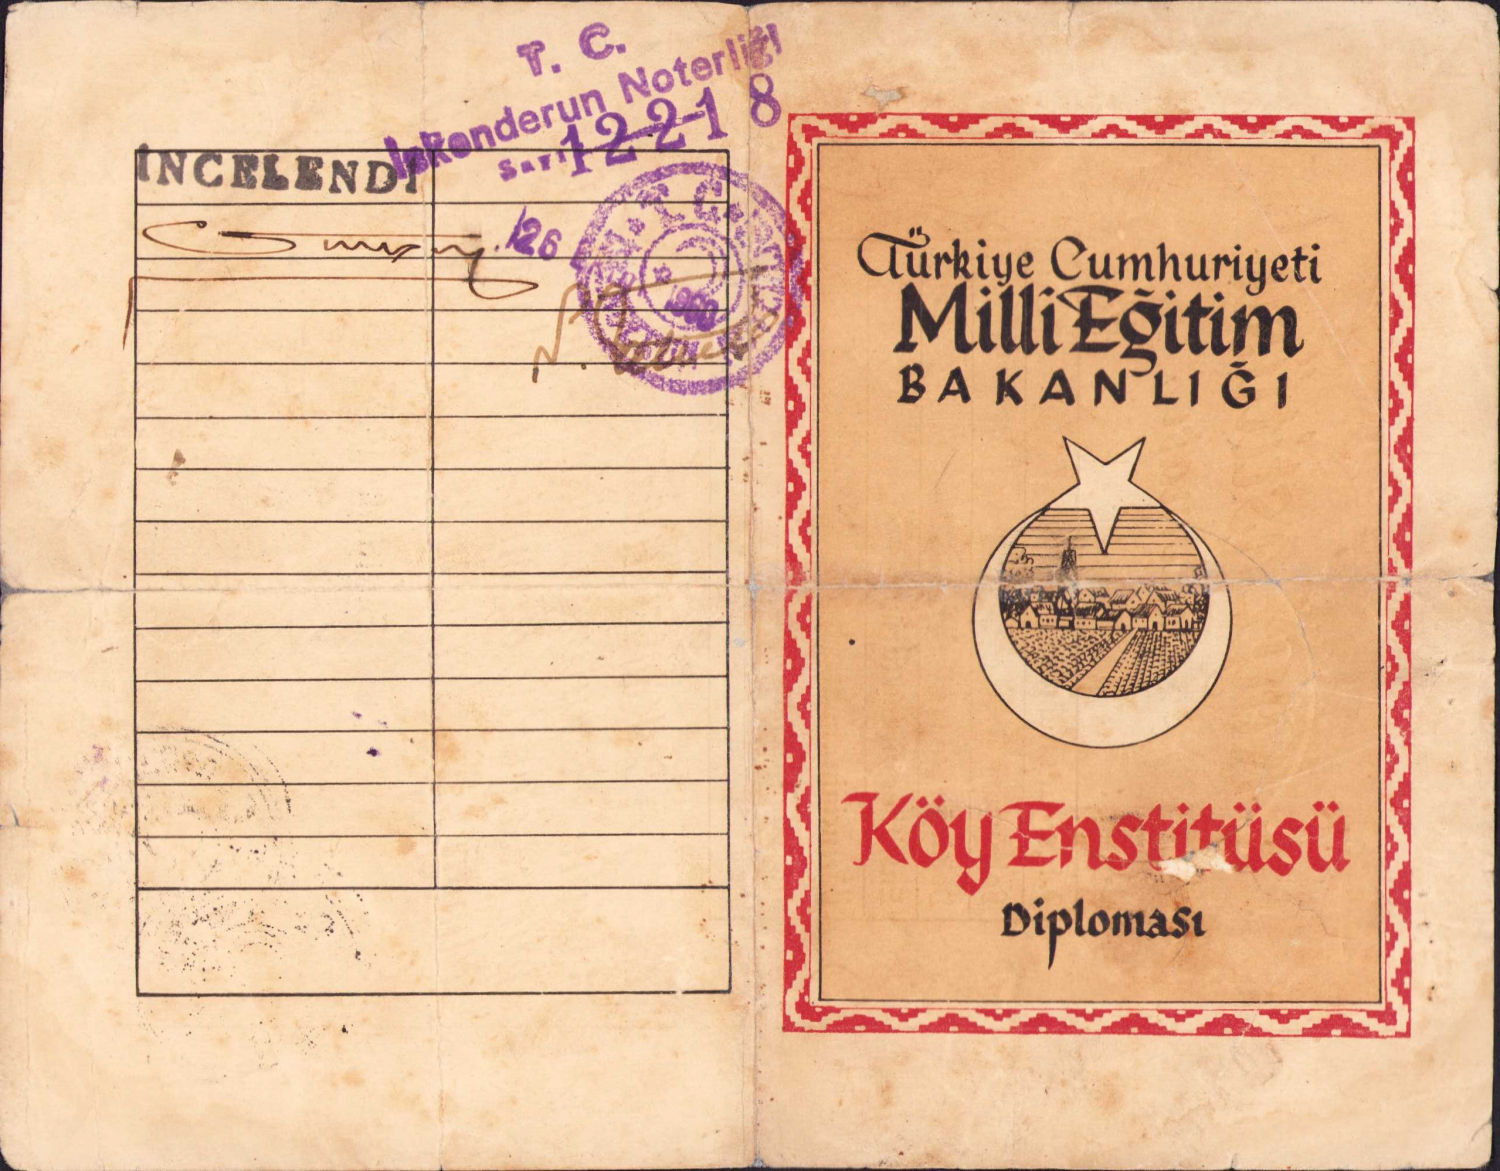 T. C.
İskenderun Noterliği
Sayı 12218
İNCELENDİ
126
T. C.
1960
Türkiye Cumhuriyeti
Milli Eğitim
BAKANLIĞI
Köy Enstitüsü
Diploması